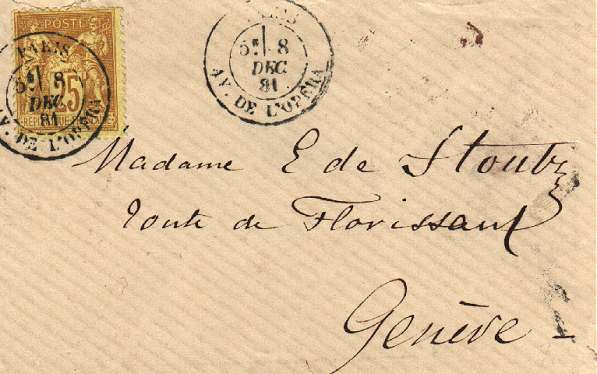 POSTE
25
PARIS
5E 8
DEC
81
AV. DE L'OPÉRA
PARIS
5E 8
DEC
81
AV. DE L'OPÉRA
Madame E de Stoutz
route de Florissant
Genève